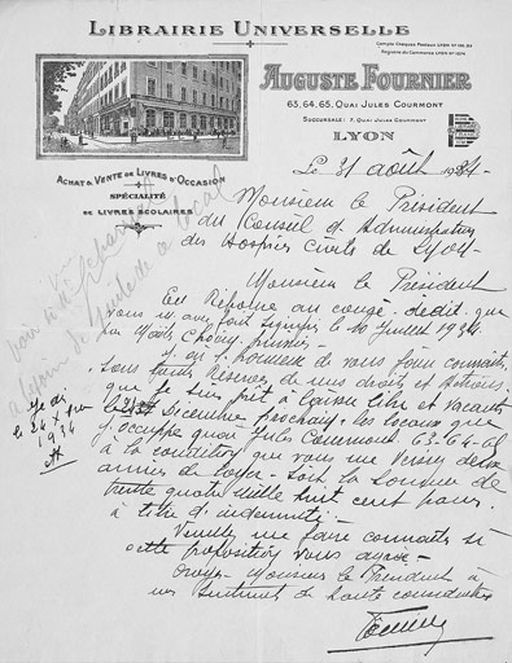 LIBRAIRIE UNIVERSELLE
Compte Chèques Postaux LYON Nº
Registre du Commerce LYON Nº
AUGUSTE FOURNIER
63, 64, 65, QUAI JULES COURMONT
SUCCURSALE: 7, QUAI JULES COURMONT
LYON
ACHAT & VENTE DE LIVRES D'OCCASION
SPÉCIALITÉ
DE LIVRES SCOLAIRES
Le 31 août 1934-
Monsieur le Président
du Conseil d'Administration
des Hospices Civils de Lyon-
Monsieur le Président
En Réponse au congé-dédit que
vous m'avez fait signifier le 10 Juillet 1934
par Maître
J'ai l'honneur de vous faire connaître,
sous toutes Réserves de mes droits et Actions,
que je suis prêt à laisser libre et vacants
le Décembre prochain, les locaux que
j'occupe quai Jules Courmont 63-64-65
à la condition que vous me versiez deux
années de loyer- soit la somme de
trente quatre mille huit cent francs.
à titre d'indemnité.-
Veuillez me faire connaître si
cette proposition vous agrée-
Croyez- Monsieur le Président à
mes sentiments de haute considération
voir si
besoin de suite de ce local
le 24
1934